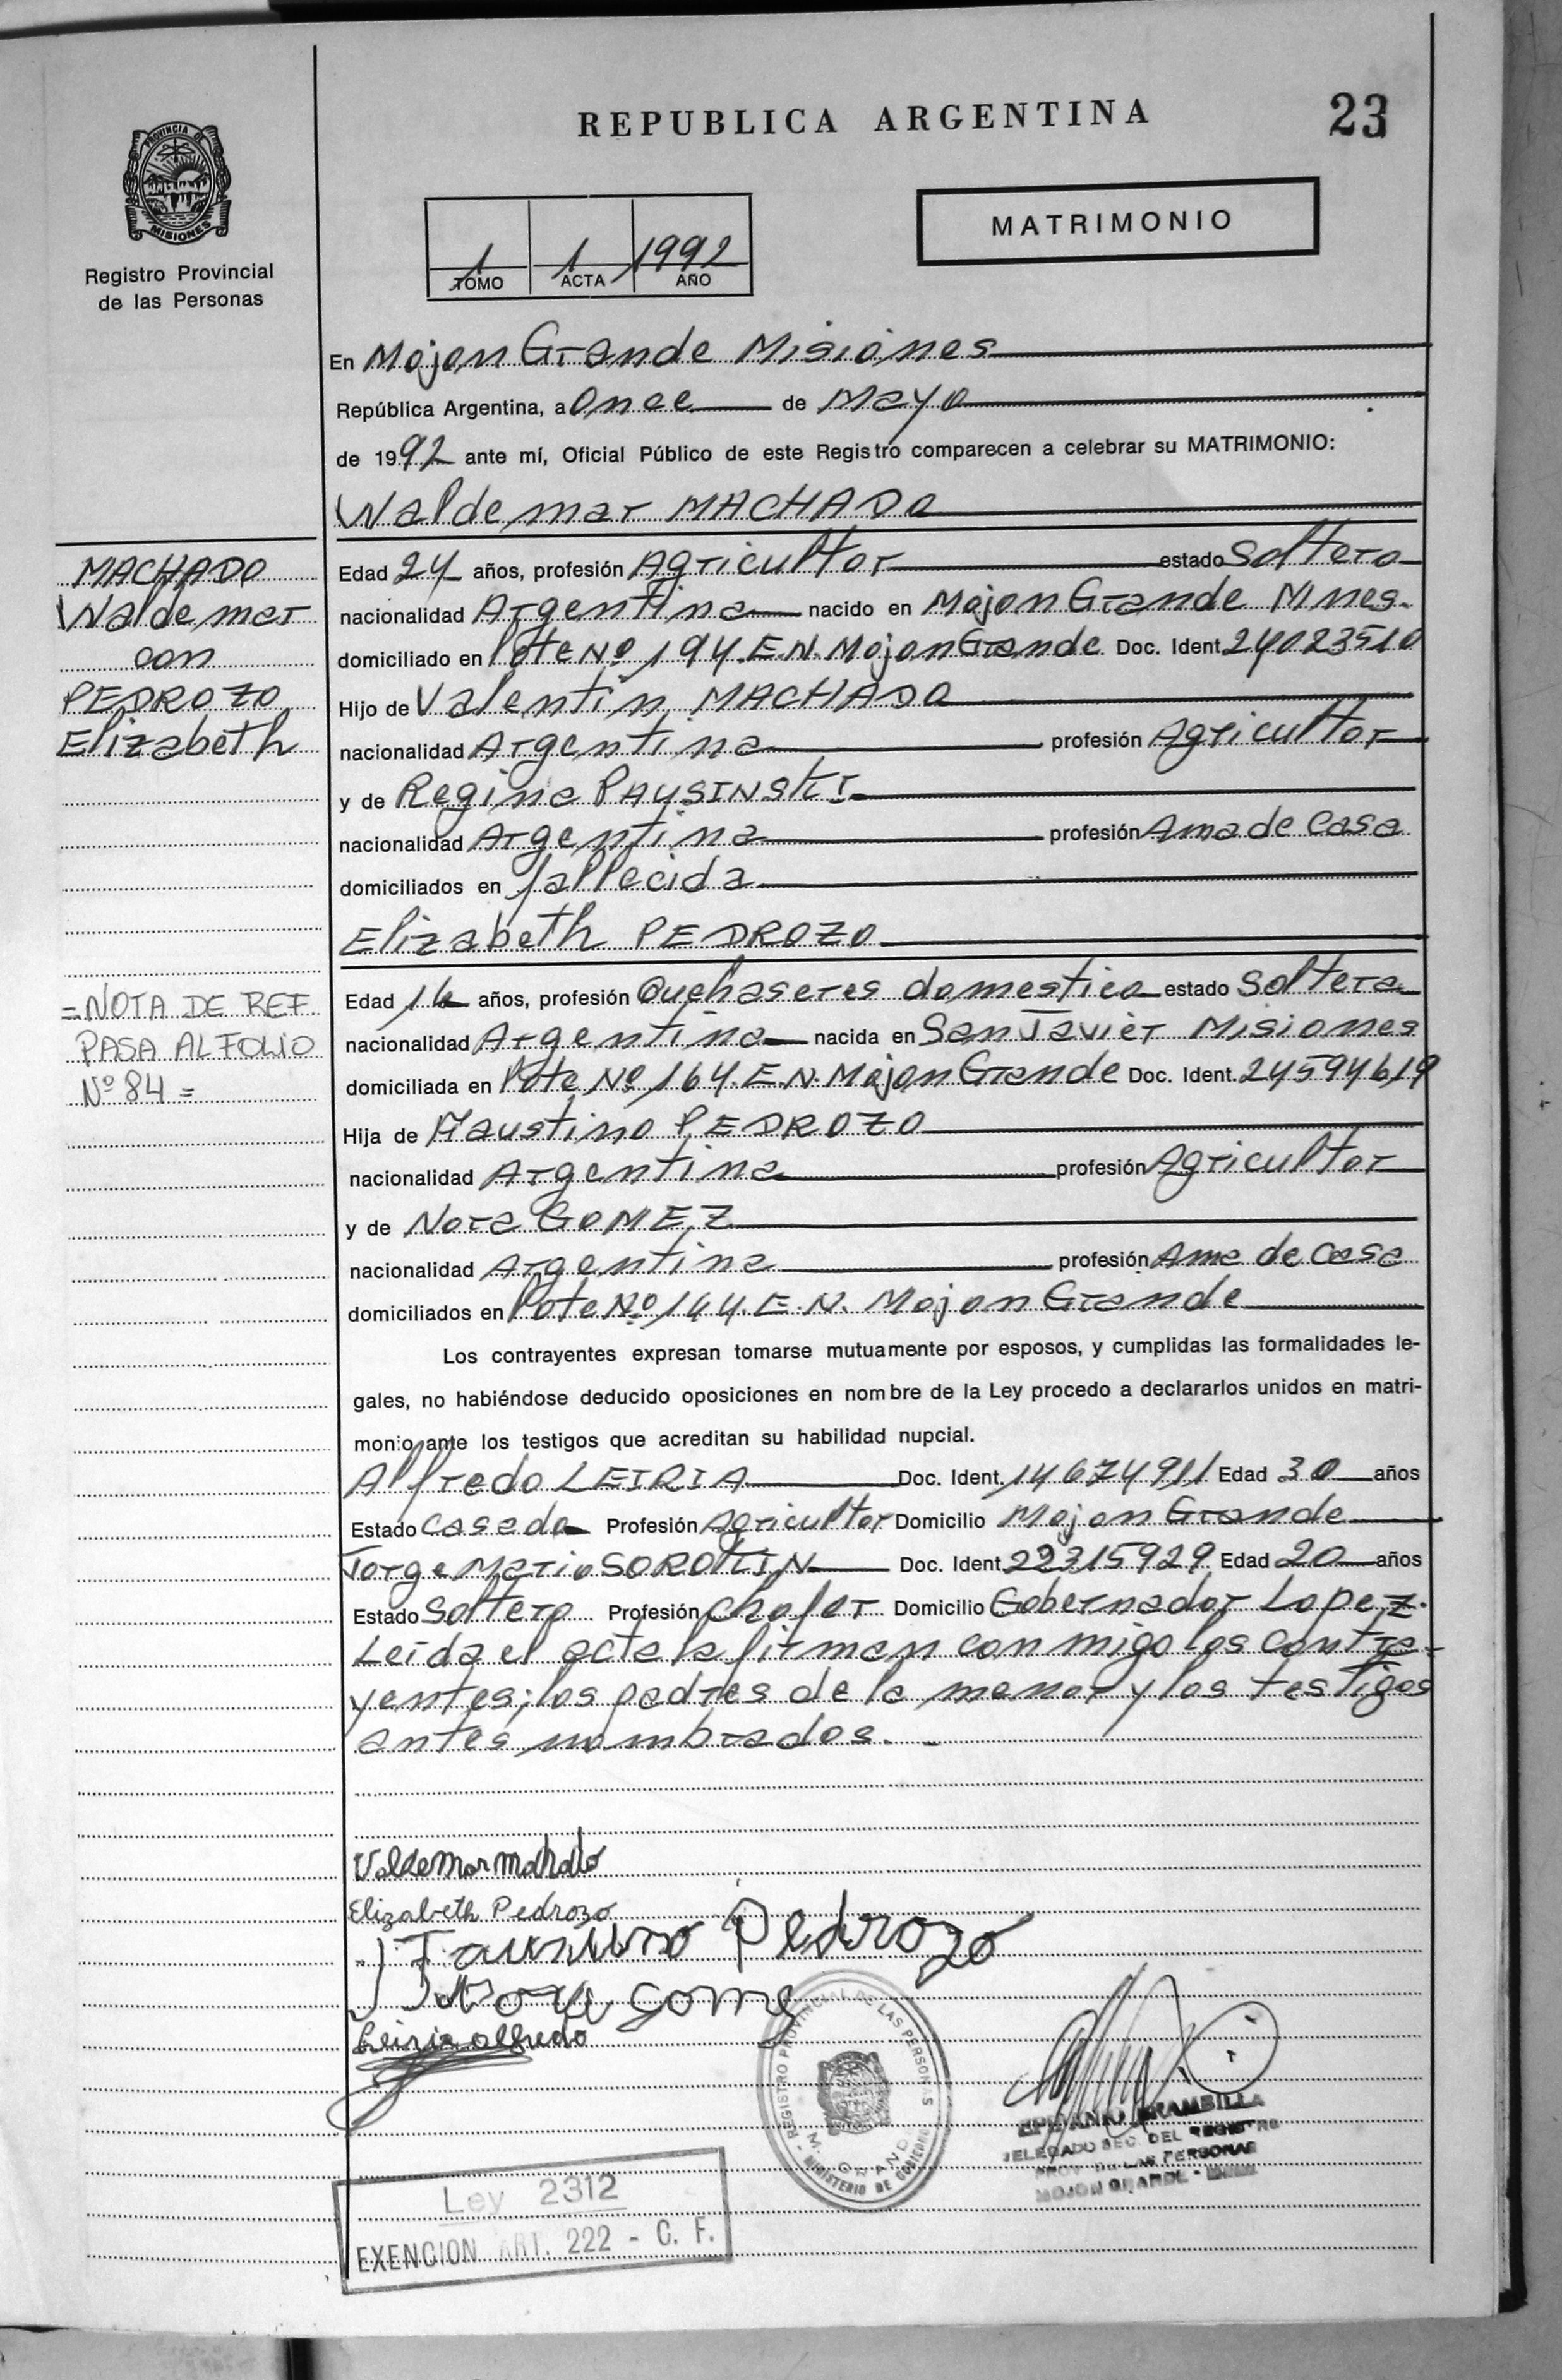 REPUBLICA ARGENTINA
23
PROVINCIA DE
MISIONES
Registro Provincial
de las Personas
MATRIMONIO
1 1 1992
TOMO ACTA AÑO
En Mojon Grande Misiones
República Argentina, a Once de Mayo
de 1992 ante mí, Oficial Público de este Registro comparecen a celebrar su MATRIMONIO:
Waldemar MACHADO
MACHADO
Waldemar
con
PEDROZO
Elizabeth
Edad 24 años, profesión Agricultor estado Soltero
nacionalidad Argentina nacido en Mojon Grande Mnes.
domiciliado en lote Nº 194. E.N. Mojon Grande Doc. Ident. 24023510
Hijo de Valentin MACHADO
nacionalidad Argentina profesión Agricultor
y de Regina PAUSINSKI
nacionalidad Argentina profesión Ama de Casa
domiciliados en fallecida
Elizabeth PEDROZO
=NOTA DE REF
PASA AL FOLIO
Nº 84 =
Edad 16 años, profesión Quehaseres domestico estado Soltera
nacionalidad Argentina nacida en San Javier Misiones
domiciliada en lote Nº 164. E.N. Mojon Grande Doc. Ident. 24594619
Hija de Faustino PEDROZO
nacionalidad Argentina profesión Agricultor
y de Nora GOMEZ
nacionalidad Argentina profesión Ama de Casa
domiciliados en lote Nº 164. E.N. Mojon Grande
Los contrayentes expresan tomarse mutuamente por esposos, y cumplidas las formalidades le-
gales, no habiéndose deducido oposiciones en nombre de la Ley procedo a declararlos unidos en matri-
monio ante los testigos que acreditan su habilidad nupcial.
Alfredo LEIRIA Doc. Ident. 14674911 Edad 30 años
Estado Casado Profesión Agricultor Domicilio Mojon Grande
Jorge Mario SOROKIN Doc. Ident. 22315929 Edad 20 años
Estado Soltero Profesión Chofer Domicilio Gobernador Lopez.
Leida el acta la firman conmigo los contra-
yentes; los padres de la menor y los testigos
antes nombrados. -
Valdemar machado
Elizabeth Pedrozo
Faustino Pedrozo
Nora gomez
Leiria alfredo
REGISTRO PROVINCIAL DE LAS PERSONAS
M. GRANDE
MINISTERIO DE GOBIERNO
EPIFANIO BRAMBILLA
DELEGADO SEC. DEL REGISTRO
PROV. DE LAS PERSONAS
MOJON GRANDE -
Ley 2312
EXENCION ART. 222 - C. F.